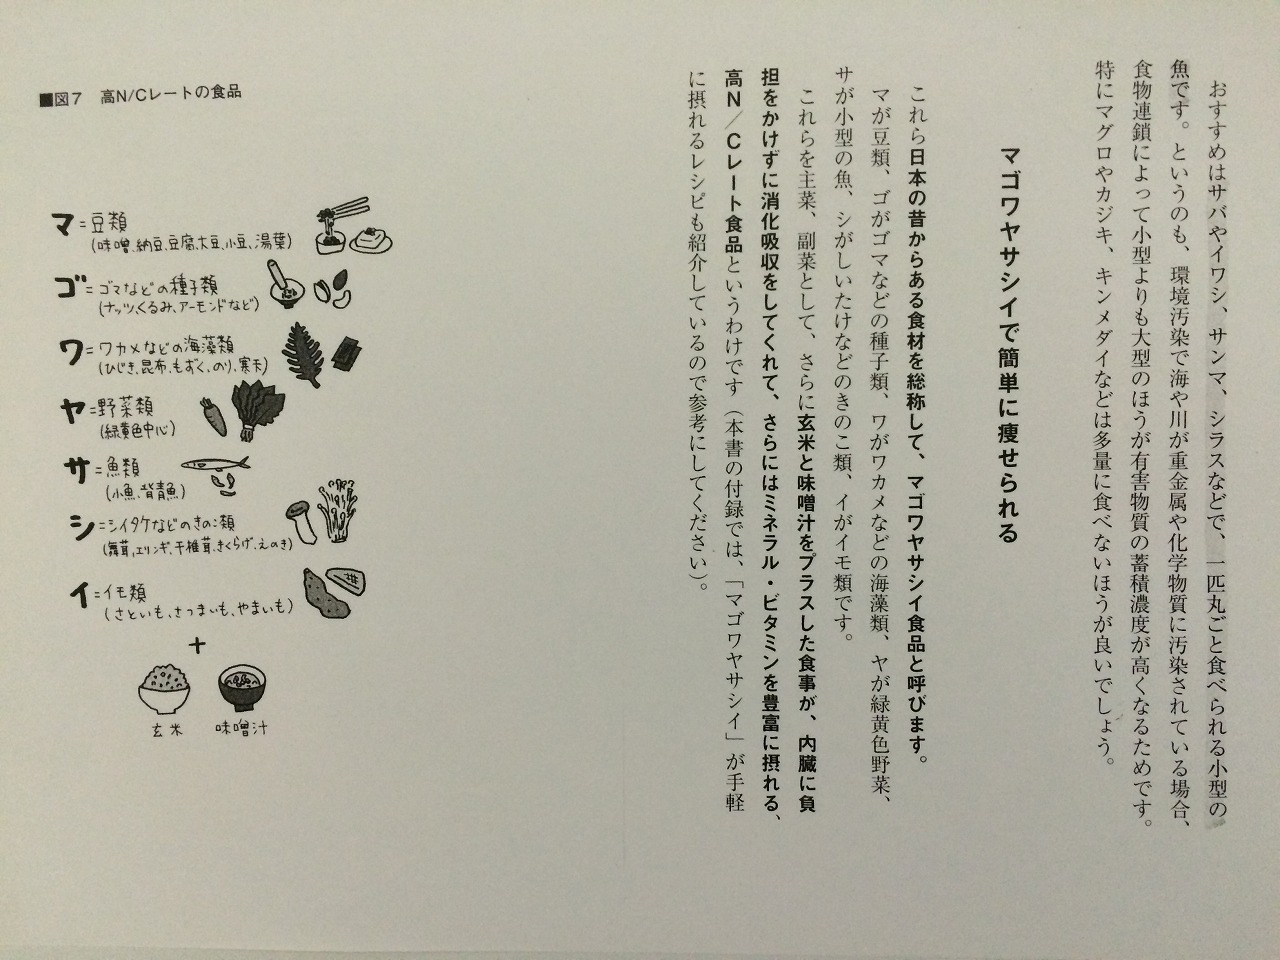 おすすめはサバやイワシ、サンマ、シラスなどで、一匹丸ごと食べられる小型の
魚です。というのも、環境汚染で海や川が重金属や化学物質に汚染されている場合、
食物連鎖によって小型よりも大型のほうが有害物質の蓄積濃度が高くなるためです。
特にマグロやカジキ、キンメダイなどは多量に食べないほうが良いでしょう。
マゴワヤサシイで簡単に痩せられる
これら日本の昔からある食材を総称して、マゴワヤサシイ食品と呼びます。
マが豆類、ゴがゴマなどの種子類、ワがワカメなどの海藻類、ヤが緑黄色野菜、
サが小型の魚、シがしいたけなどのきのこ類、イがイモ類です。
これらを主菜、副菜として、さらに玄米と味噌汁をプラスした食事が、内臓に負
担をかけずに消化吸収をしてくれて、さらにはミネラル・ビタミンを豊富に摂れる、
高N／Cレート食品というわけです（本書の付録では、「マゴワヤサシイ」が手軽
に摂れるレシピも紹介しているので参考にしてください）。
■図7 高N/Cレートの食品
マ=豆類
(味噌、納豆、豆腐、大豆、小豆、湯葉)
ゴ=ゴマなどの種子類
(ナッツ、くるみ、アーモンドなど)
ワ=ワカメなどの海藻類
(ひじき、昆布、もずく、のり、寒天)
ヤ=野菜類
(緑黄色中心)
サ=魚類
(小魚、背青魚)
シ=シイタケなどのきのこ類
(舞茸、エリンギ、干椎茸、きくらげ、えのき)
イ=イモ類
(さといも、さつまいも、やまいも)
+
玄米 味噌汁